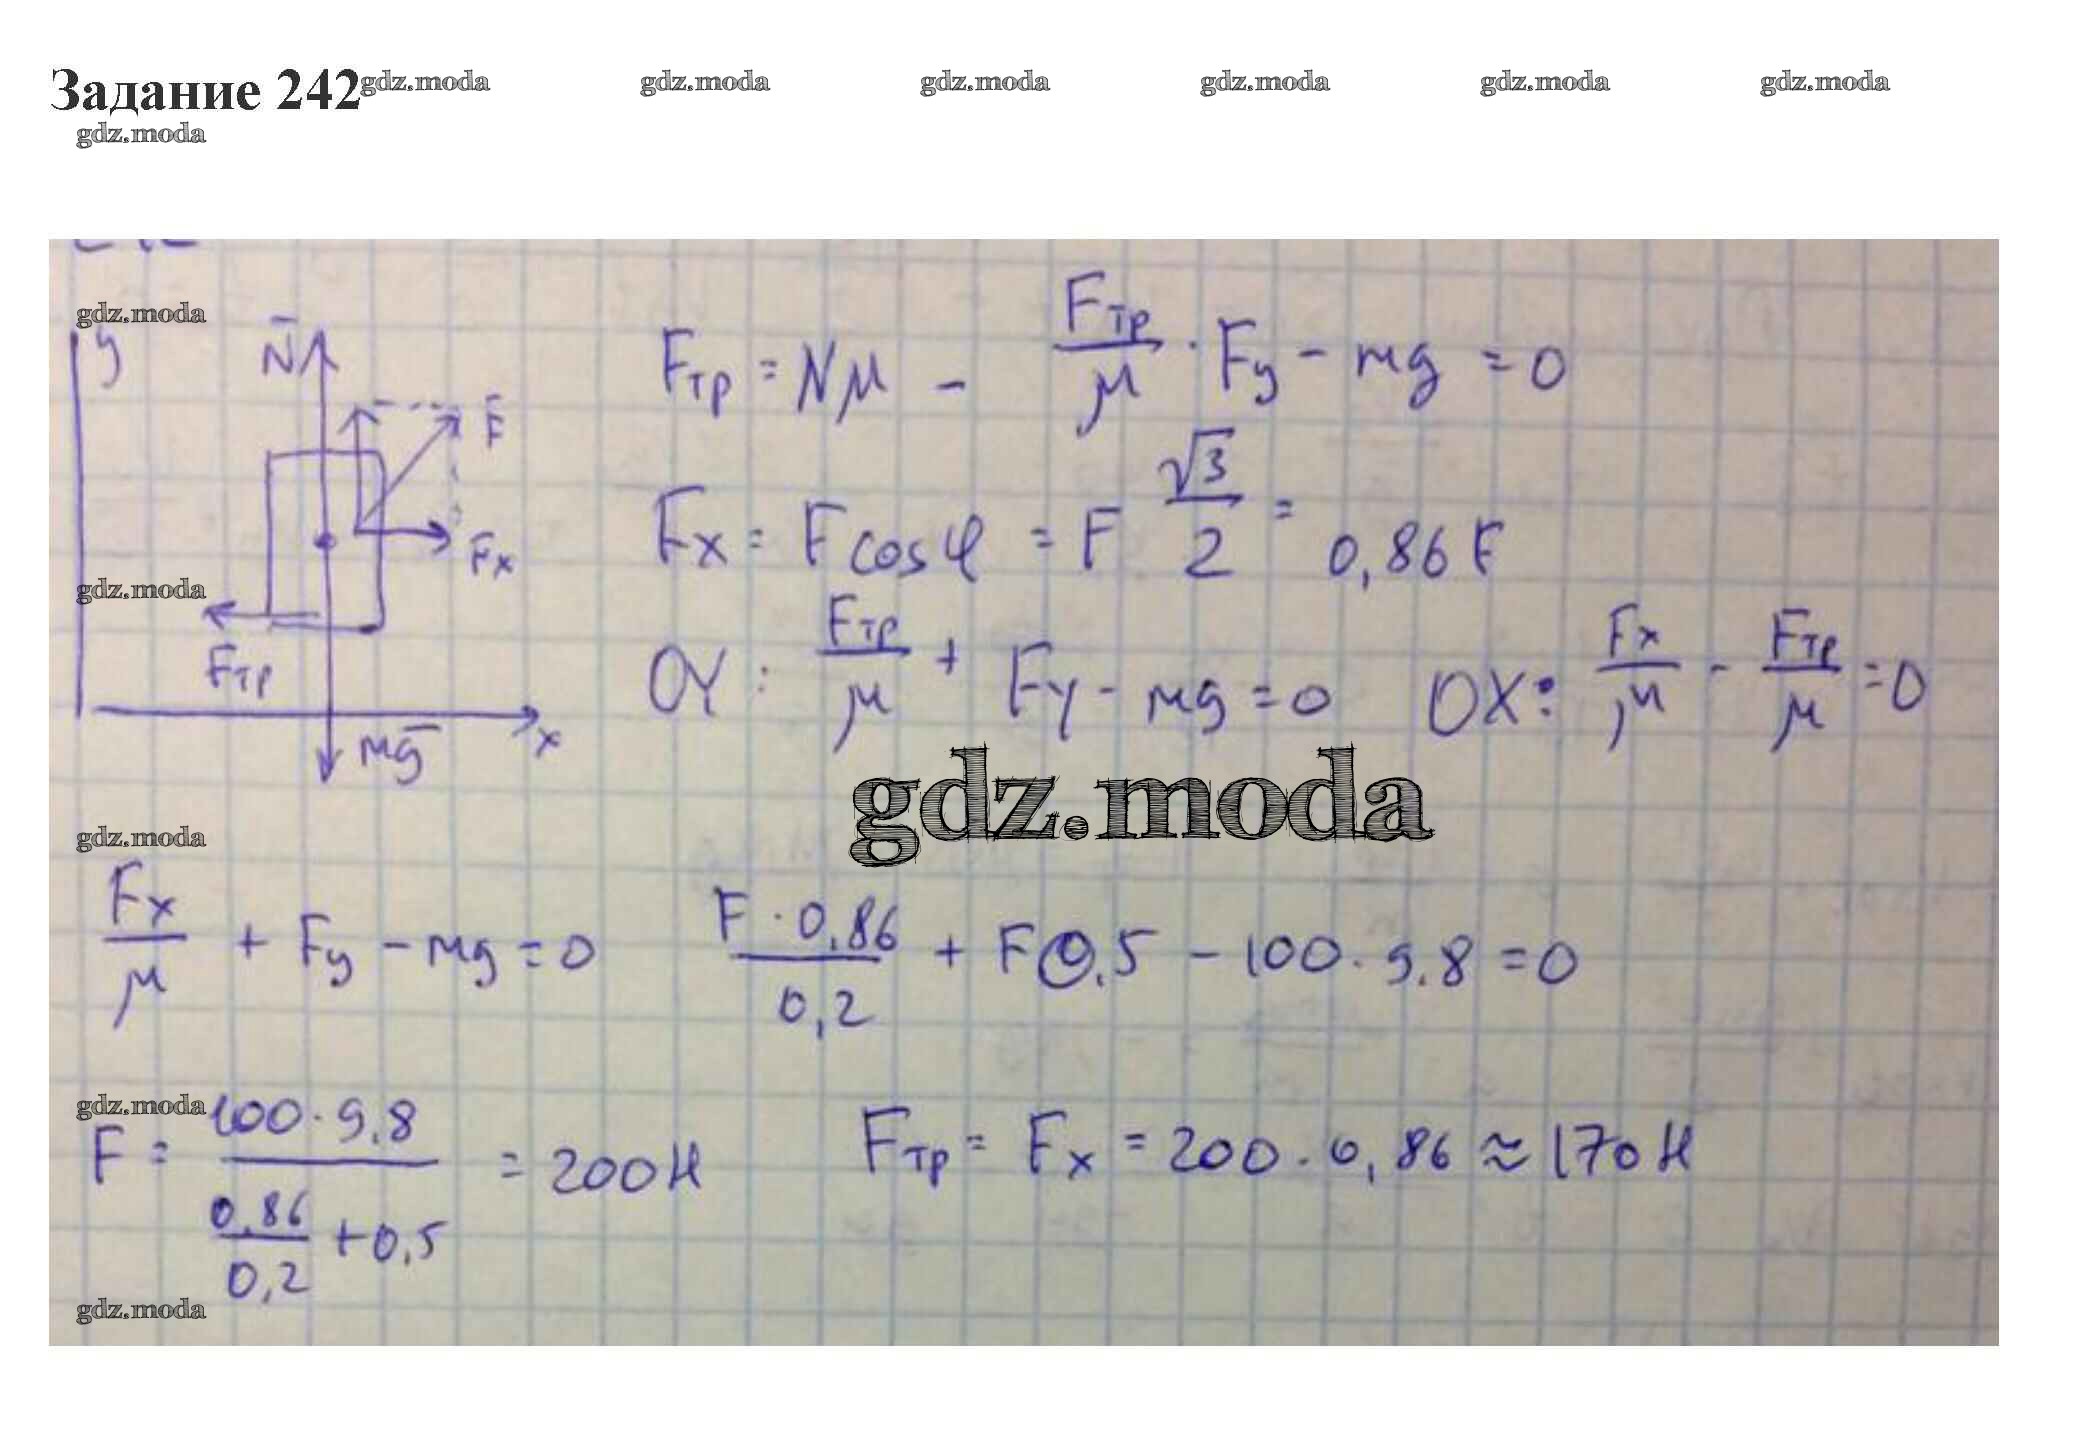 Задание 242 gdz.moda gdz.moda gdz.moda gdz.moda gdz.moda gdz.moda
gdz.moda
gdz.moda
y N̄ F̄
Fтр = Nμ - Fтр/μ · Fy - mg = 0
Fx
Fx = F cosφ = F √3/2 = 0,86 F
gdz.moda
Fтр
OY: Fтр/μ + Fy - mg = 0 OX: Fx/μ - Fтр/μ = 0
mḡ x
gdz.moda
gdz.moda
Fx/μ + Fy - mg = 0 F · 0,86/0,2 + F 0,5 - 100 · 9,8 = 0
gdz.moda
F = 100 · 9,8/(0,86/0,2 + 0,5) = 200 Н Fтр = Fx = 200 · 0,86 ≈ 170 Н
gdz.moda